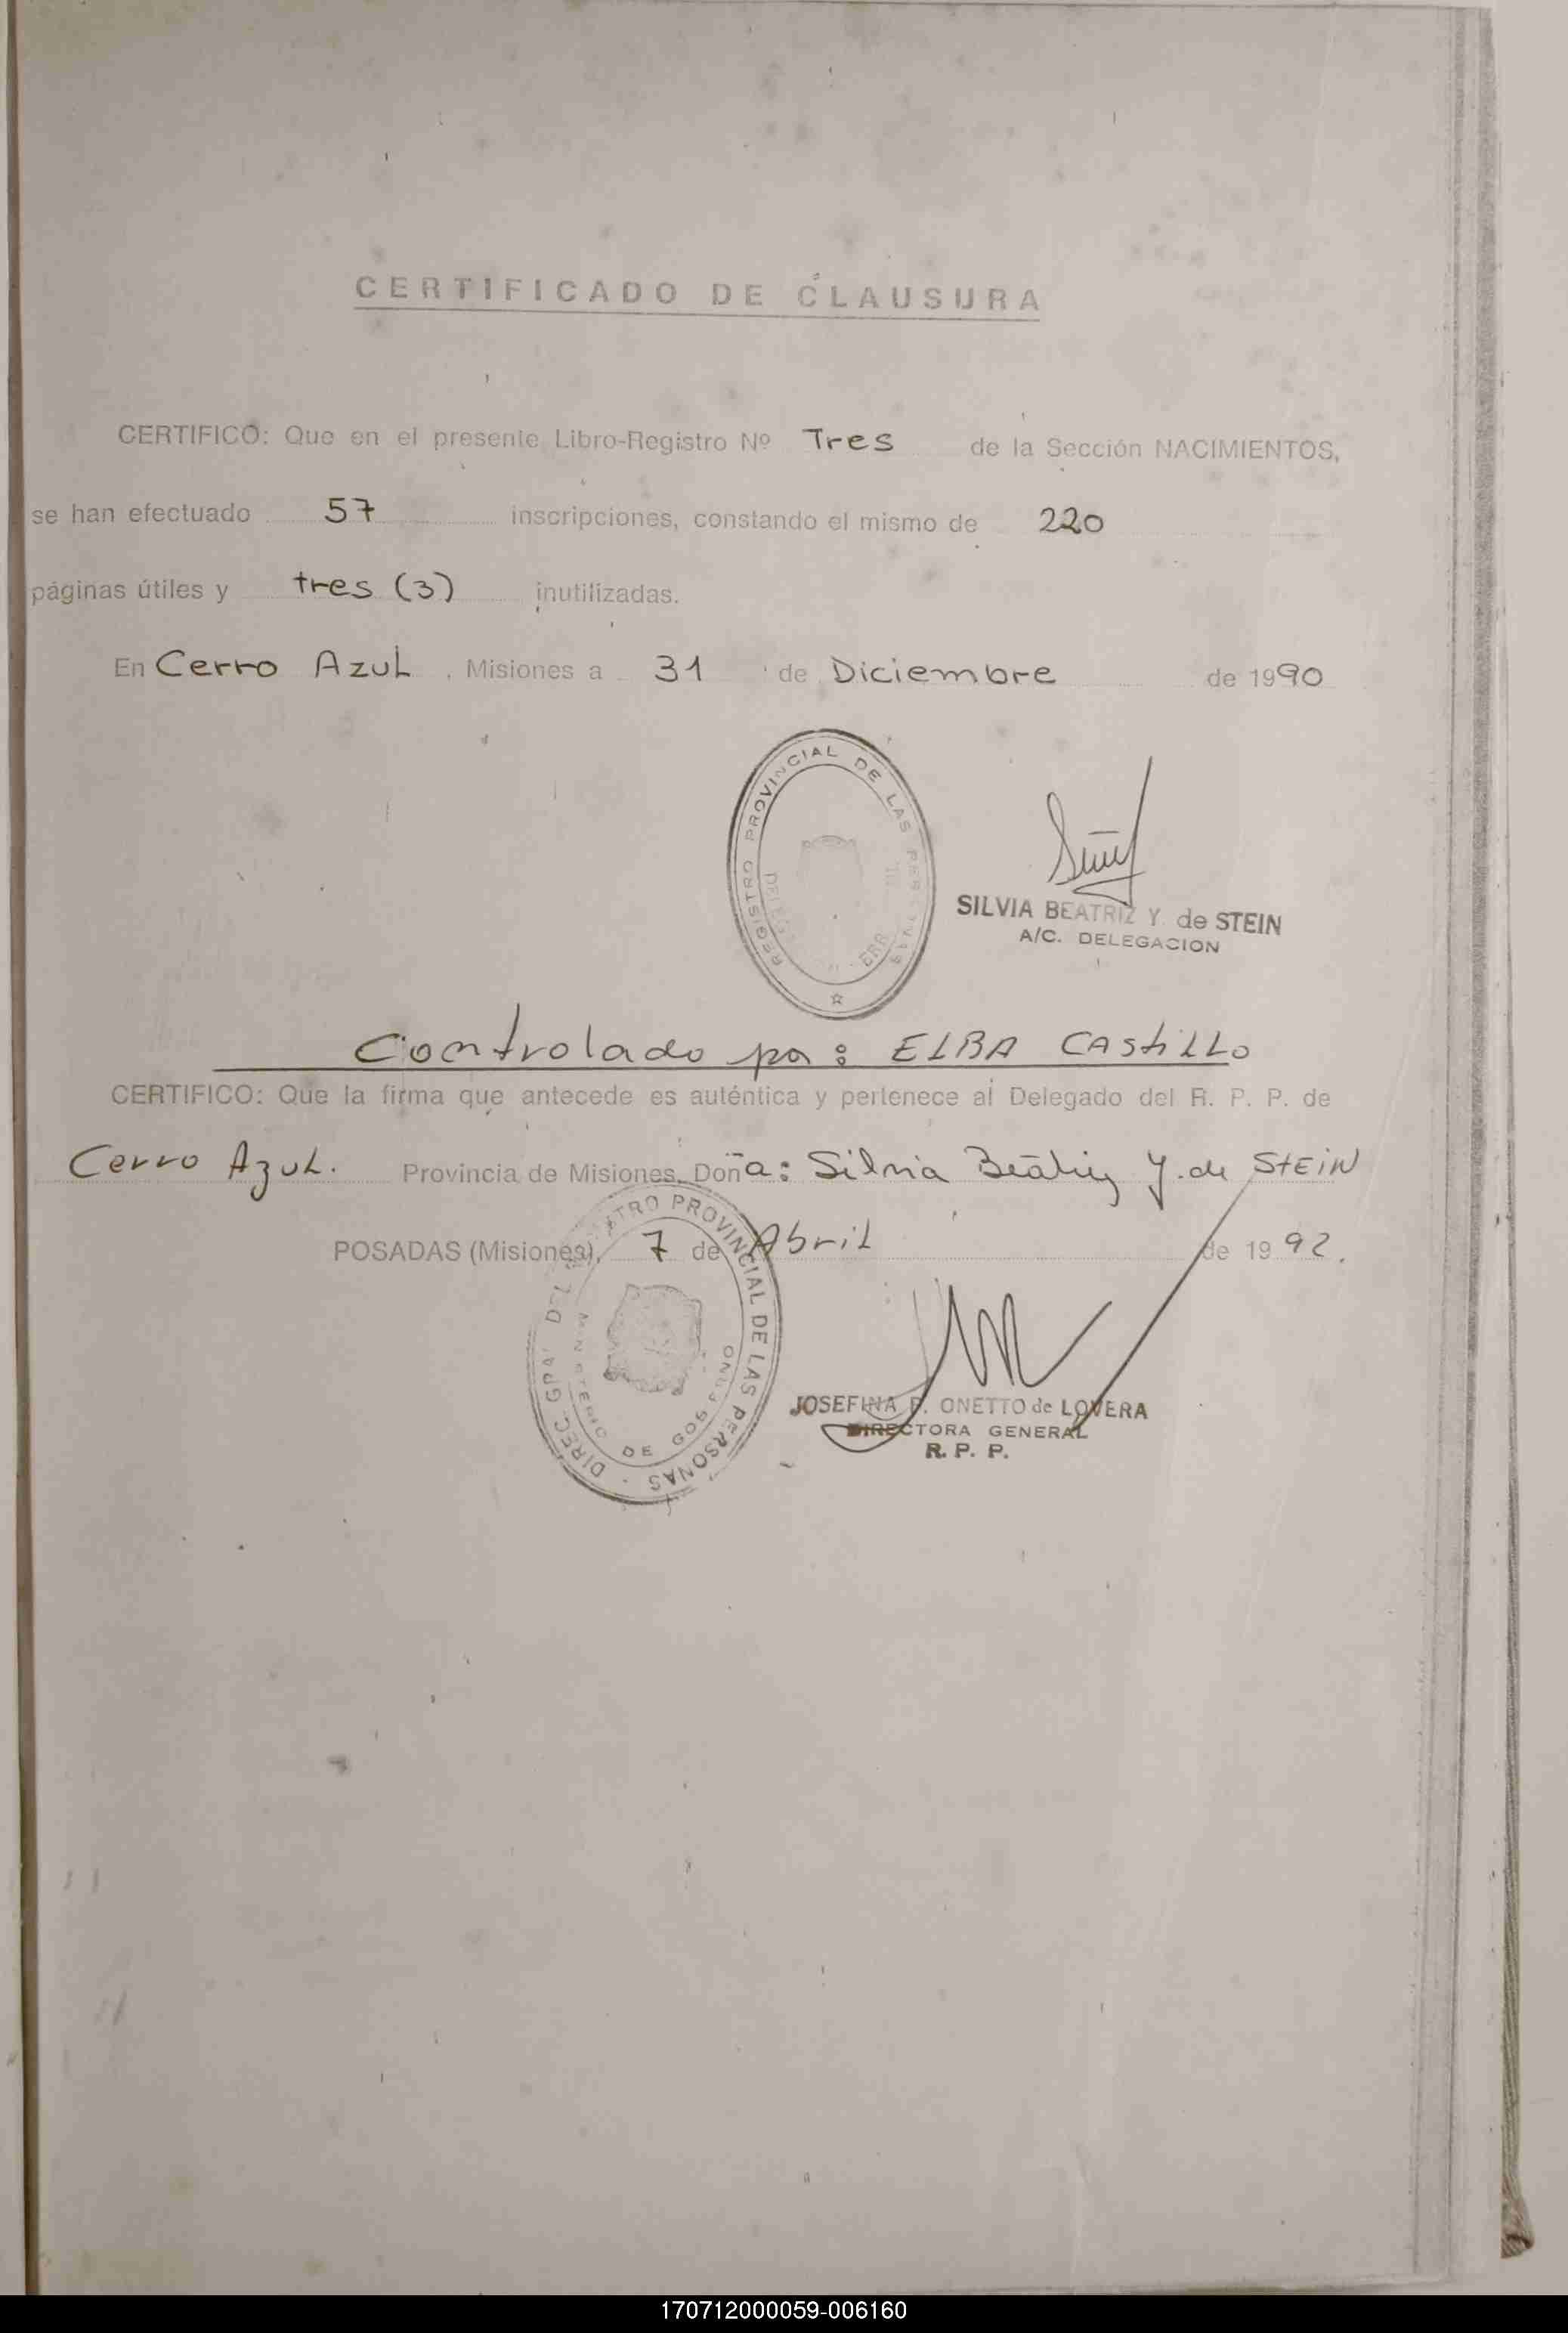 CERTIFICADO DE CLAUSURA
CERTIFICO: Que en el presente Libro-Registro Nº Tres de la Sección NACIMIENTOS,
se han efectuado 57 inscripciones, constando el mismo de 220
páginas útiles y tres (3) inutilizadas.
En Cerro Azul, Misiones a 31 de Diciembre de 1990
REGISTRO PROVINCIAL DE LAS PERSONAS
SILVIA BEATRIZ Y. de STEIN
A/C. DELEGACION
Controlado por: ELBA CASTILLO
CERTIFICO: Que la firma que antecede es auténtica y pertenece al Delegado del R. P. P. de
Cerro Azul. Provincia de Misiones, Doña: Silvia Beatriz Y. de STEIN
POSADAS (Misiones), 7 de Abril de 1992.
REGISTRO PROVINCIAL DE LAS PERSONAS
MINISTERIO DE GOBIERNO
JOSEFINA ONETTO de LOVERA
DIRECTORA GENERAL
R. P. P.
170712000059-006160